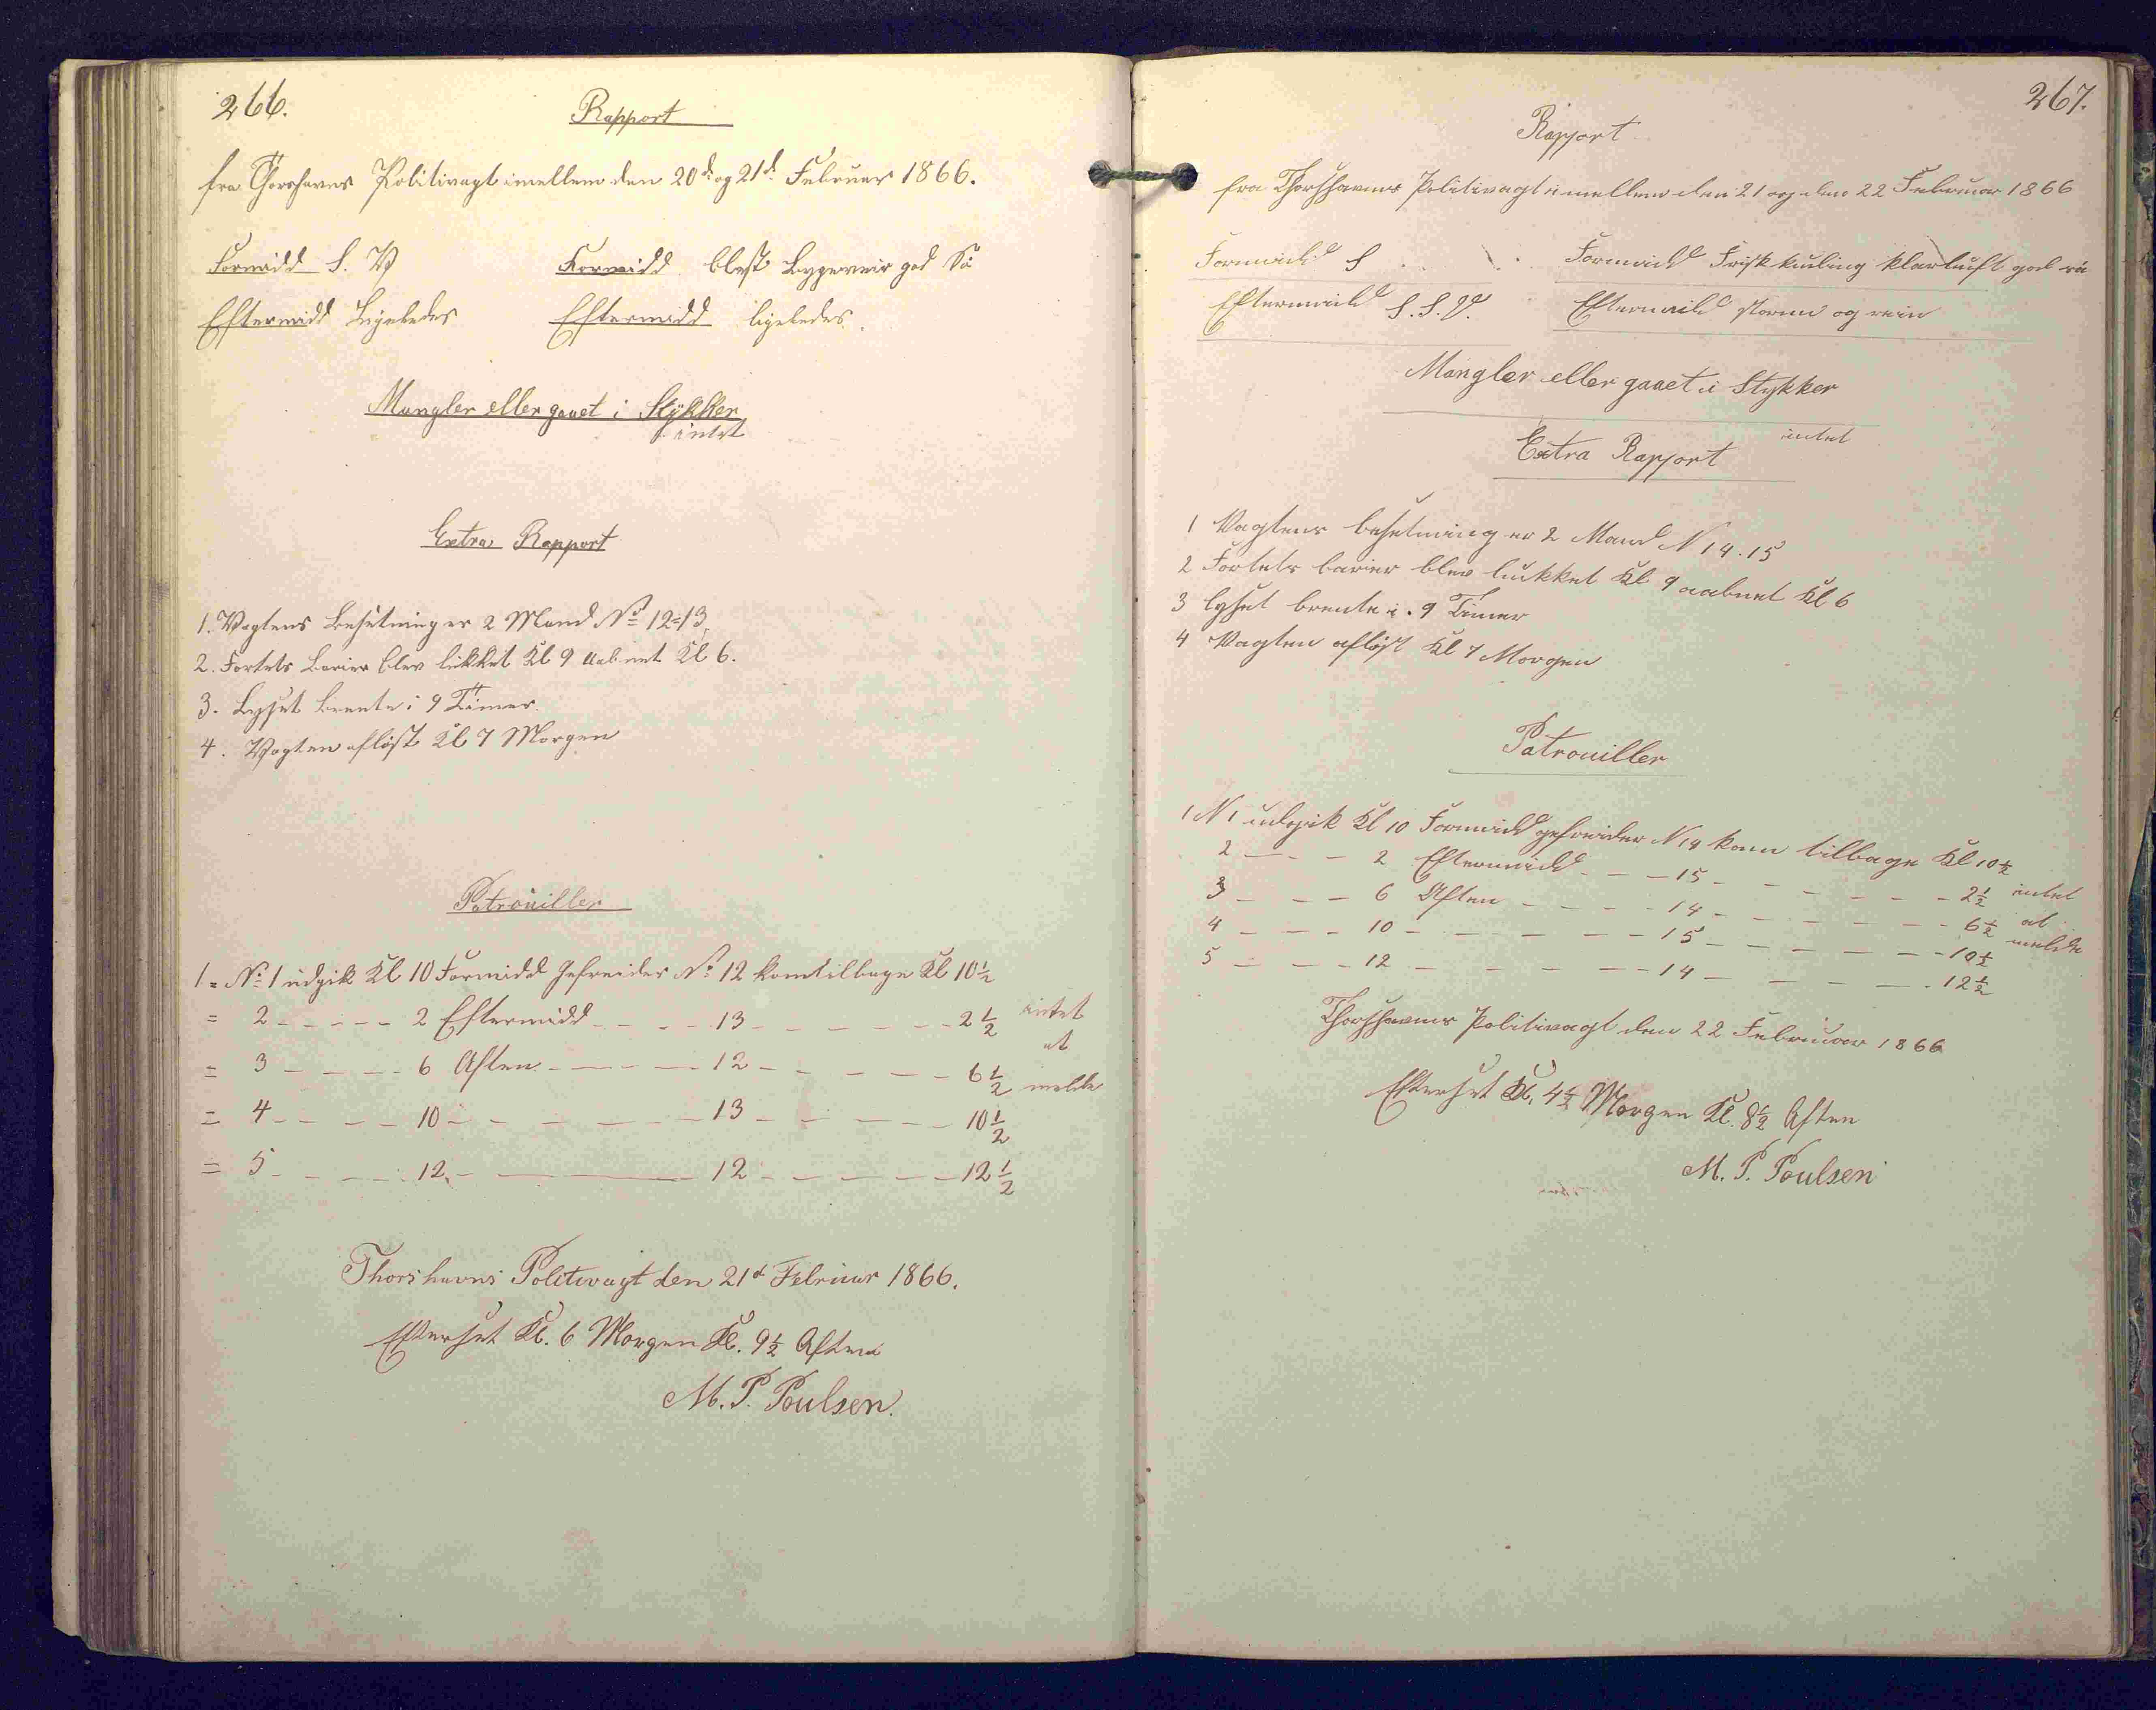 266.
Rapport
fra Thorshavns Politivagt imellem den 20d og 21d Februar 1866.
Formidd S. V Formidd blæst Bygeveir god Sö
Eftermidd Ligeledes Eftermidd ligeledes.
Mangler eller gaaet i Stykker
intet
Extra Rapport
1. Vagtens Besetning er 2 Mand No 12=13
2. Fortets Barier blev lukket Kl 9 Aabnet Kl 6.
3. Lyset brente i 9 Timer.
4. Vagten aflöst Kl 7 Morgen
Patrouiller
1 = No 1 udgik Kl 10 Formidd Gefreider No 12 kom tilbage Kl 10½
= 2 - - - - - 2 Eftermidd - - - - 13 - - - - - - 2½ intet
= 3 - - - - - 6 Aften - - - - - 12 - - - - - - 6½ at melde
= 4 - - - - 10 - - - - - - - 13 - - - - - 10½
= 5 - - - - - 12 - - - - 12 - - - - - 12½
Thorshavns Politivagt den 21d Februar 1866.
Efterset Kl. 6 Morgen Kl. 9½ Aften
M. P. Poulsen.
267.
Rapport
fra Thorshavns Politivagt imellem den 21 og den 22 Februar 1866
Formidd S Formidd Frisk kuling klar luft god sö
Eftermidd S. S. V. Eftermidd storm og rein
Mangler eller gaaet i Stykker
intet
Extra Rapport
1 Vagtens besetning er 2 Mand N 14.15
2 Fortets barier blev lukket Kl 9 aabnet Kl 6
3 lyset brente i. 9 Timer
4 Vagten aflöst Kl 7 Morgen
Patrouiller
1 N 1 udgik Kl 10 Formidd gefreider N 14 kom tilbage Kl 10½
2 - - - 2 Eftermidd - - - 15 - - - - - - 2½ intet
3 - - - 6 Aften - - - - 14 - - - - - - 6½ at
4 - - - 10 - - - - - - 15 - - - - - 10½ melde
5 - - - 12 - - - - - 14 - - - - 12½
Thorshavns Politivagt den 22 Februar 1866
Efterset Kl. 4½ Morgen Kl. 8½ Aften
M. P. Poulsen